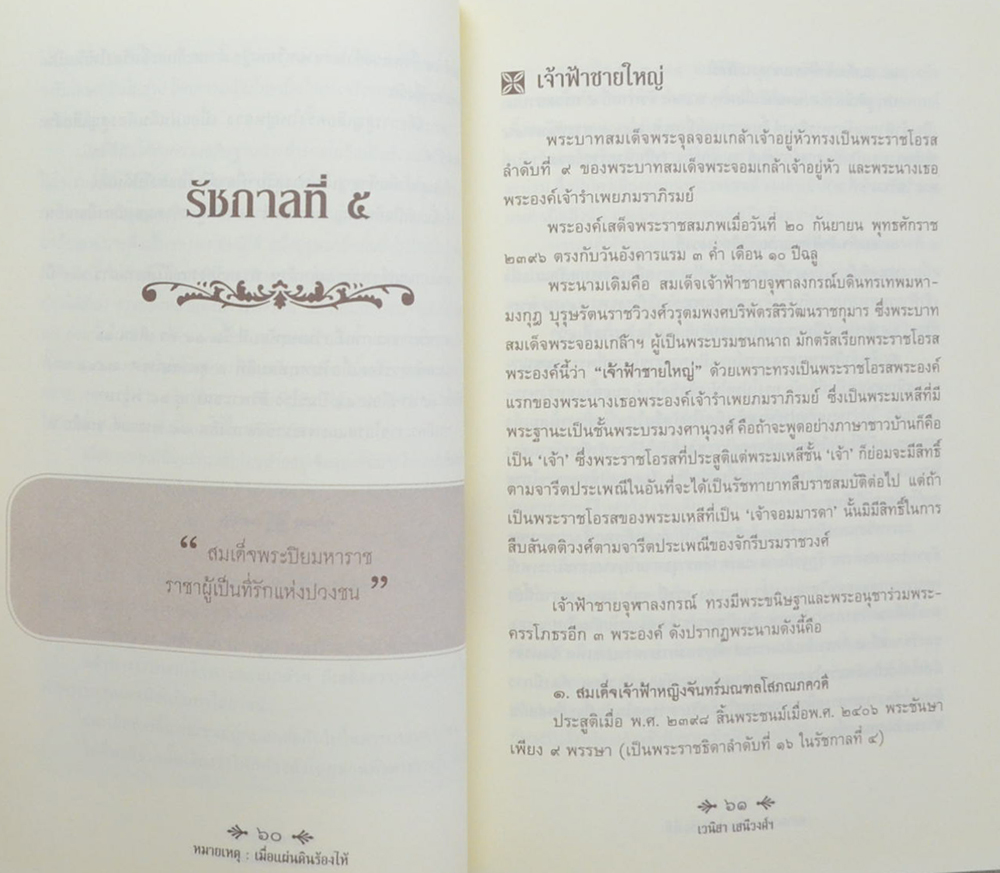 รัชกาลที่ ๕
“ สมเด็จพระปิยมหาราช
ราชาผู้เป็นที่รักแห่งปวงชน ”
๖๐
หมายเหตุ : เมื่อแผ่นดินร้องไห้
เจ้าฟ้าชายใหญ่
พระบาทสมเด็จพระจุลจอมเกล้าเจ้าอยู่หัวทรงเป็นพระราชโอรส
ลำดับที่ ๙ ของพระบาทสมเด็จพระจอมเกล้าเจ้าอยู่หัว และพระนางเธอ
พระองค์เจ้ารำเพยภมราภิรมย์
พระองค์เสด็จพระราชสมภพเมื่อวันที่ ๒๐ กันยายน พุทธศักราช
๒๓๙๖ ตรงกับวันอังคารแรม ๓ ค่ำ เดือน ๑๐ ปีฉลู
พระนามเดิมคือ สมเด็จเจ้าฟ้าชายจุฬาลงกรณ์บดินทรเทพมหา-
มงกุฎ บุรุษรัตนราชวิวงศ์วรุตมพงศบริพัตรสิริวัฒนราชกุมาร ซึ่งพระบาท
สมเด็จพระจอมเกล้าฯ ผู้เป็นพระบรมชนกนาถ มักตรัสเรียกพระราชโอรส
พระองค์นี้ว่า “เจ้าฟ้าชายใหญ่” ด้วยเพราะทรงเป็นพระราชโอรสพระองค์
แรกของพระนางเธอพระองค์เจ้ารำเพยภมราภิรมย์ ซึ่งเป็นพระมเหสีที่มี
พระฐานะเป็นชั้นพระบรมวงศานุวงศ์ คือถ้าจะพูดอย่างภาษาชาวบ้านก็คือ
เป็น ‘เจ้า’ ซึ่งพระราชโอรสที่ประสูติแต่พระมเหสีชั้น ‘เจ้า’ ก็ย่อมจะมีสิทธิ์
ตามจารีตประเพณีในอันที่จะได้เป็นรัชทายาทสืบราชสมบัติต่อไป แต่ถ้า
เป็นพระราชโอรสของพระมเหสีที่เป็น ‘เจ้าจอมมารดา’ นั้นมิมีสิทธิ์ในการ
สืบสันตติวงศ์ตามจารีตประเพณีของจักรีบรมราชวงศ์
เจ้าฟ้าชายจุฬาลงกรณ์ ทรงมีพระขนิษฐาและพระอนุชาร่วมพระ-
ครรโภธรอีก ๓ พระองค์ ดังปรากฏพระนามดังนี้คือ
๑. สมเด็จเจ้าฟ้าหญิงจันทร์มณฑลโสภณภควดี
ประสูติเมื่อ พ.ศ. ๒๓๙๘ สิ้นพระชนม์เมื่อพ.ศ. ๒๔๐๖ พระชันษา
เพียง ๙ พรรษา (เป็นพระราชธิดาลำดับที่ ๑๖ ในรัชกาลที่ ๔)
๖๑
เวนิสา เสนีวงศ์ฯ